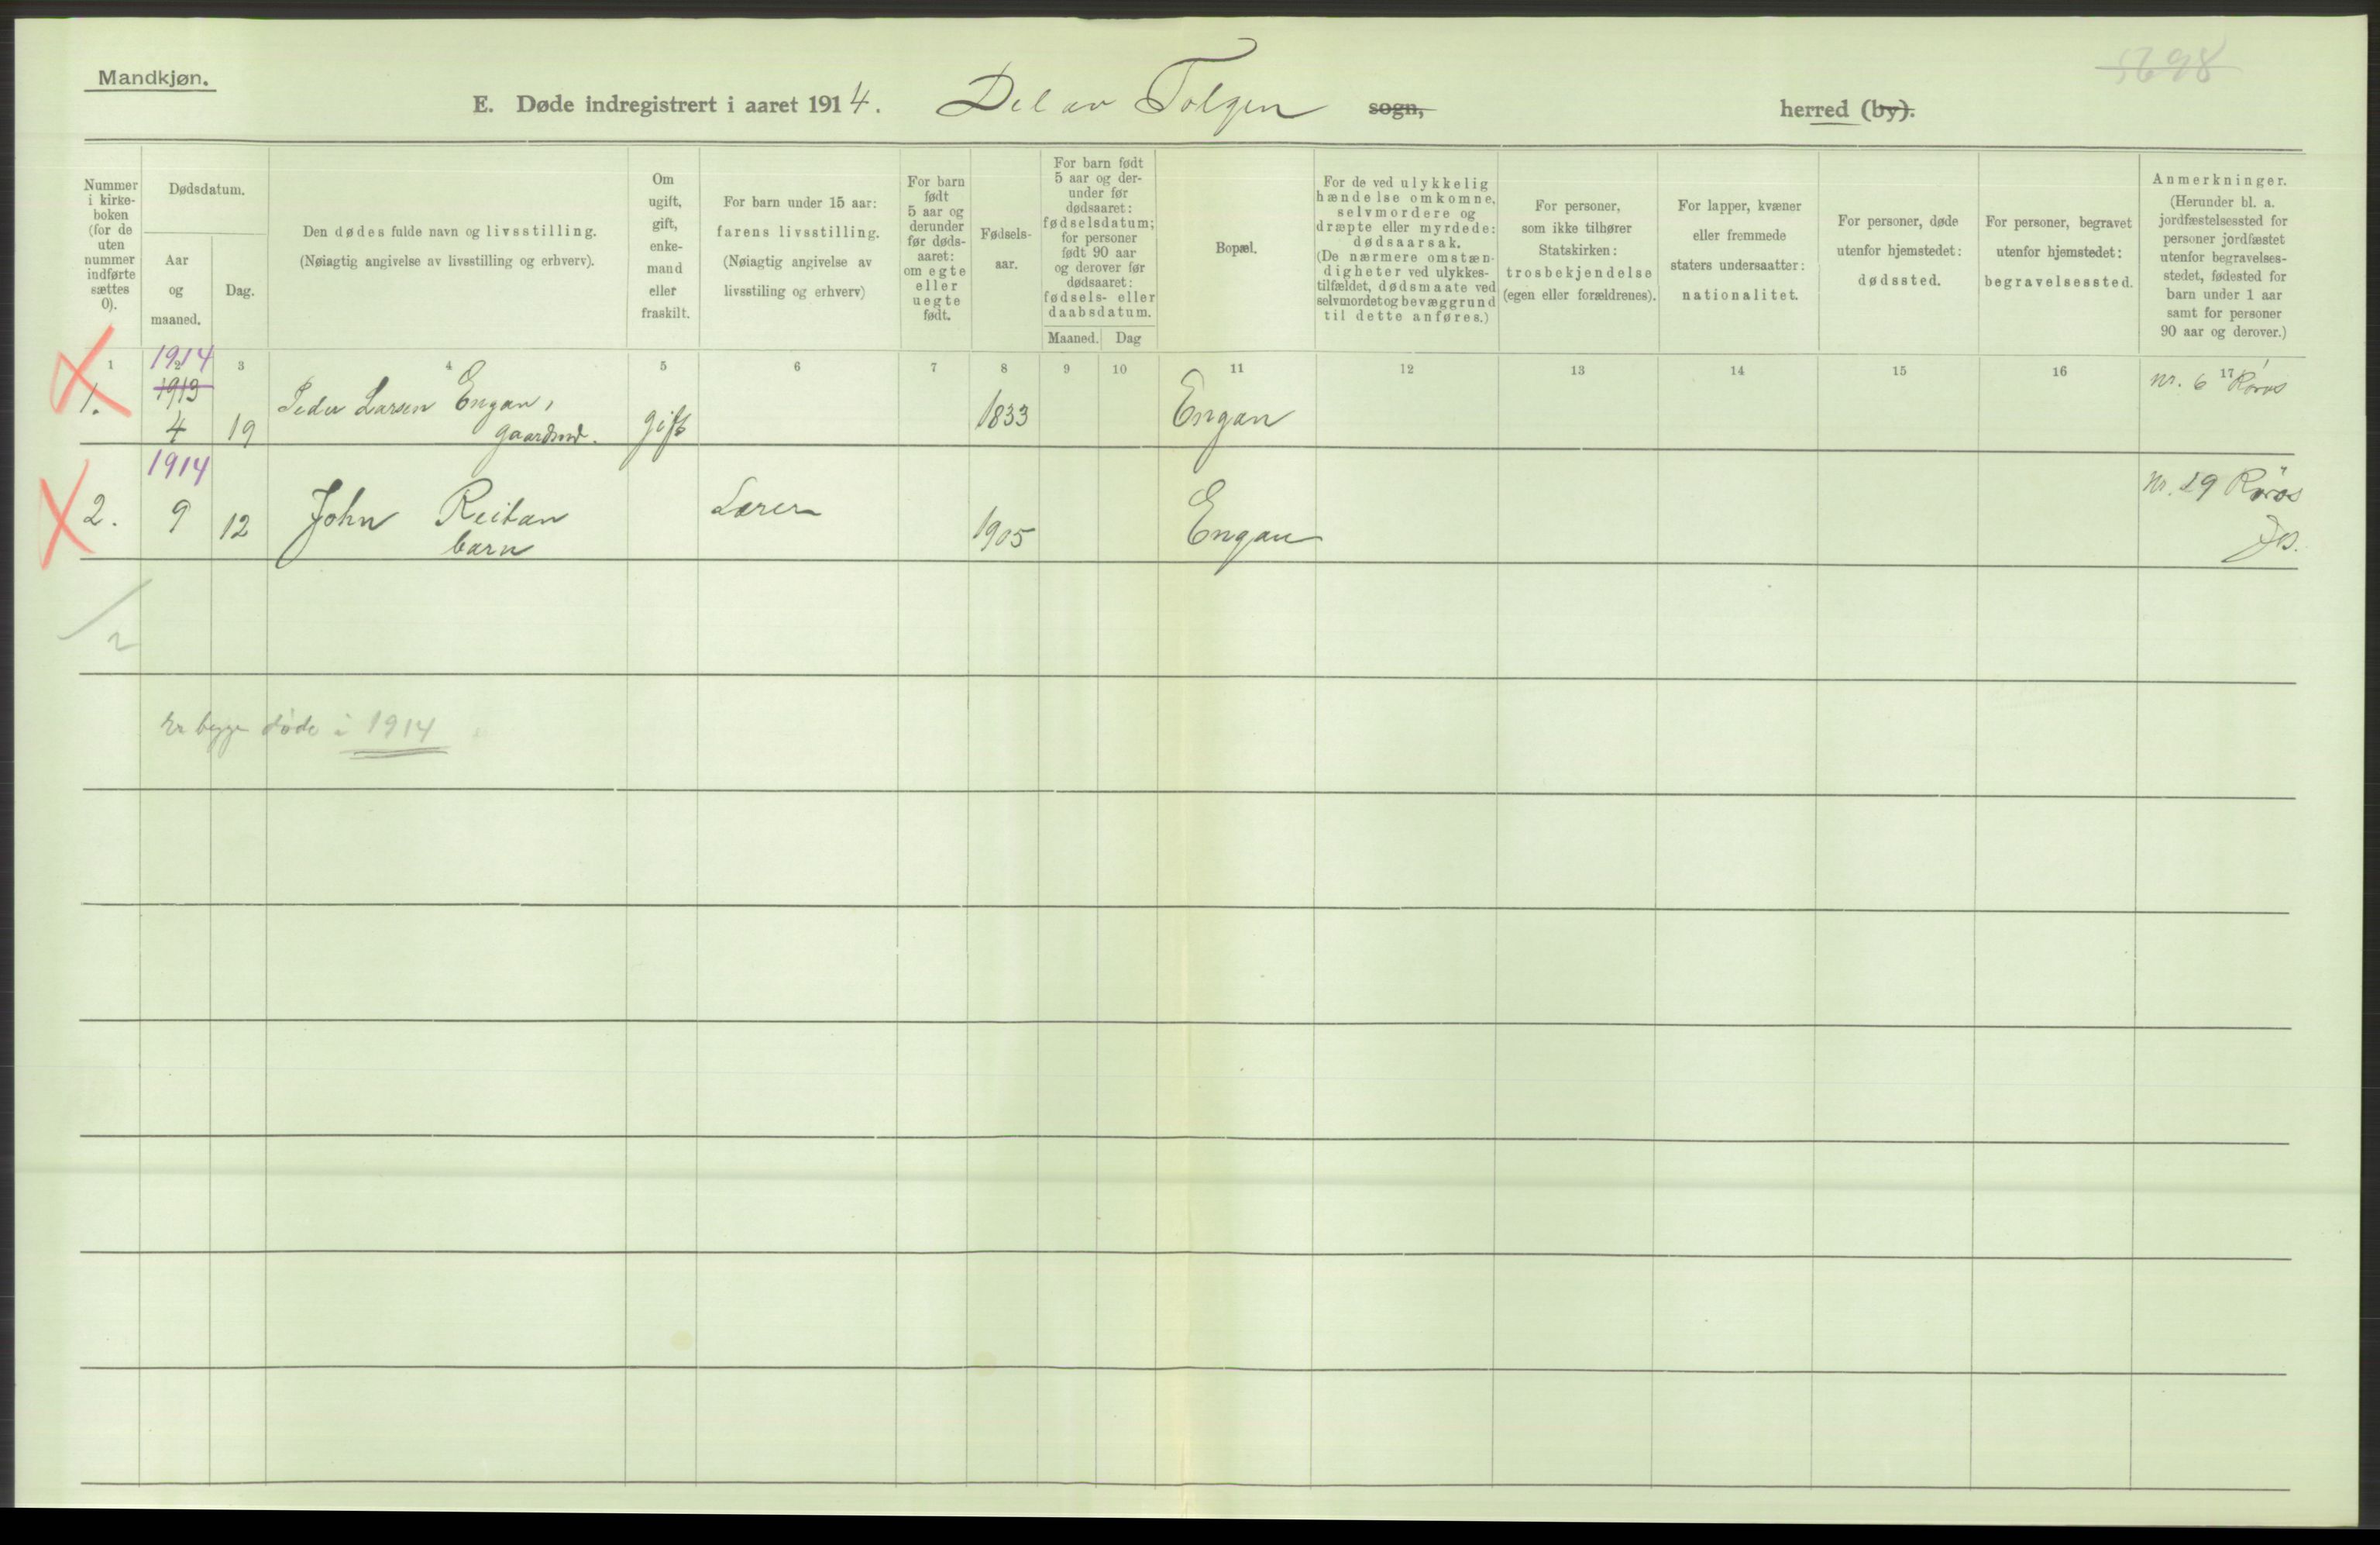 Mandkjøn.
5698
E. Døde indregistrert i aaret 1914. Del av Tolgen sogn, herred (by).
Nummer
i kirke-
boken
(for de
uten
nummer
indførte
sættes
0).
Dødsdatum.
Aar
og
maaned.
Dag.
Den dødes fulde navn og livsstilling.
(Nøiagtig angivelse av livsstilling og erhverv).
Om
ugift,
gift,
enke-
mand
eller
fraskilt.
For barn under 15 aar:
farens livsstilling.
(Nøiagtig angivelse av
livsstiling og erhverv)
For barn
født
5 aar og
derunder
før døds-
aaret:
om egte
eller
uegte
født.
Fødsels-
aar.
For barn født
5 aar og der-
under før
dødsaaret:
fødselsdatum;
for personer
født 90 aar
og derover før
dødsaaret:
fødsels- eller
daabsdatum.
Maaned. Dag
Bopæl.
For de ved ulykkelig
hændelse omkomne,
selvmordere og
dræpte eller myrdede:
dødsaarsak.
(De nærmere omstæn-
digheter ved ulykkes-
tilfældet, dødsmaate ved
selvmordet og bevæggrund
til dette anføres.)
For personer,
som ikke tilhører
Statskirken:
trosbekjendelse
(egen eller forældrenes).
For lapper, kvæner
eller fremmede
staters undersaatter:
nationalitet.
For personer, døde
utenfor hjemstedet:
dødssted.
For personer, begravet
utenfor hjemstedet:
begravelsessted.
Anmerkninger.
(Herunder bl. a.
jordfæstelsessted for
personer jordfæstet
utenfor begravelses-
stedet, fødested for
barn under 1 aar
samt for personer
90 aar og derover.)
1 2 3 4 5 6 7 8 9 10 11 12 13 14 15 16 17
1914
1913
1. 4 19 Peder Larsen Engan, gaardmd. gift 1833 Engan nr. 6 Røros
1914
2. 9 12 John Reitan Lærer 1905 Engan nr. 19 Røros
barn
2
Er begge døde i 1914